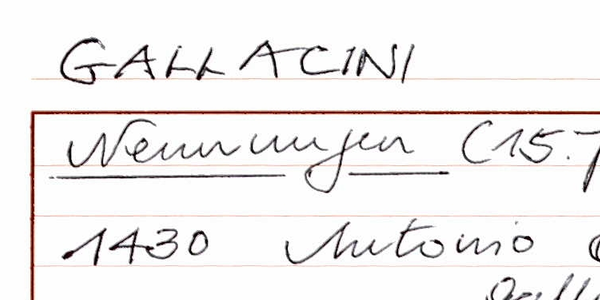 GALLACINI
Nennungen (15.
1430 Antonio